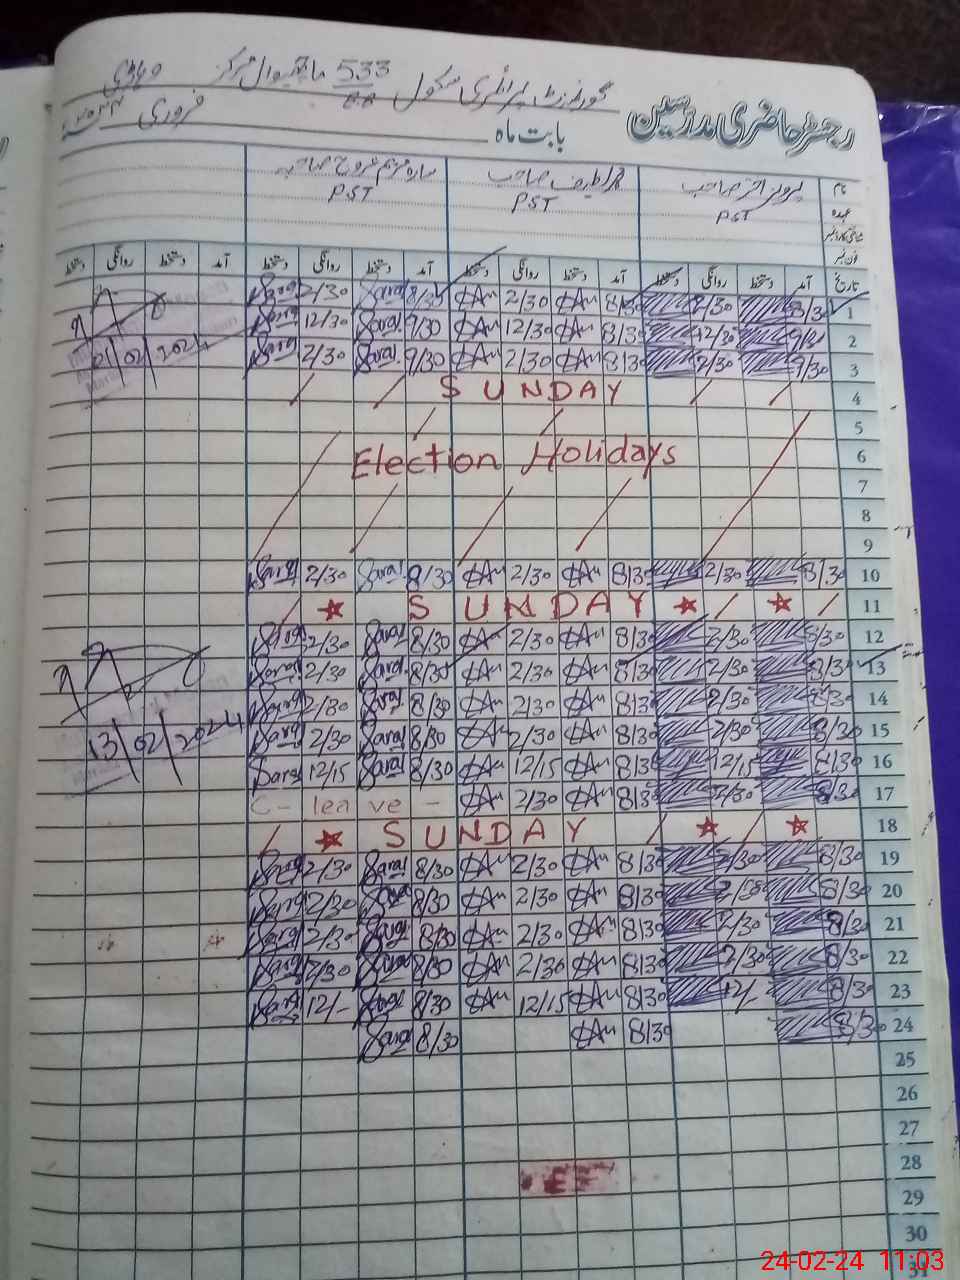 گورنمنٹ پرائمری سکول 533 ماچھیوال مرکز وہاڑی
رجسٹر حاضری مدرسین
بابت ماہ فروری
نام
PST PST PST
عہدہ
تاریخ آمد دستخط روانگی دستخط آمد دستخط روانگی دستخط آمد دستخط روانگی دستخط آمد دستخط روانگی دستخط
1 8/30 2/30 8/30 2/30 8/30 Sara 2/30 Sara
2 9/30 12/30 8/30 12/30 9/30 Sara 12/30 Sara
3 9/30 2/30 8/30 2/30 9/30 Sara 2/30 Sara
01/02/2024
4 SUNDAY
5
6 Election Holidays
7
8
9
10 8/30 2/30 8/30 2/30 8/30 Sara 2/30 Sara
11 SUNDAY
12 8/30 2/30 8/30 2/30 8/30 Sara 2/30 Sara
13 8/30 2/30 8/30 2/30 8/30 Sara 2/30 Sara
14 8/30 2/30 8/30 2/30 8/30 Sara 2/30 Sara
13/02/2024
15 8/30 2/30 8/30 2/30 8/30 Sara 2/30 Sara
16 8/30 12/15 8/30 12/15 8/30 Sara 12/15 Sara
17 8/30 2/30 8/30 2/30 C-leave-
18 SUNDAY
19 8/30 2/30 8/30 2/30 8/30 Sara 2/30 Sara
20 8/30 2/30 8/30 2/30 8/30 Sara 2/30 Sara
21 8/30 2/30 8/30 2/30 8/30 Sara 2/30 Sara
22 8/30 2/30 8/30 2/30 8/30 Sara 2/30 Sara
23 8/30 12/- 8/30 12/15 8/30 Sara 12/- Sara
24 8/30 8/30 8/30 Sara
25
26
27
28
29
30
31
24-02-24 11:03